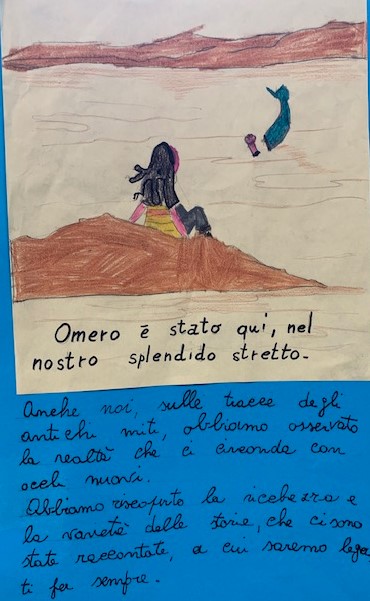 Omero è stato qui, nel
nostro splendido stretto.
Anche noi, sulle tracce degli
antichi miti, abbiamo osservato
la realtà che ci circonda con
occhi nuovi.
Abbiamo riscoperto la ricchezza e
la varietà delle storie, che ci sono
state raccontate, a cui saremo lega
ti per sempre.